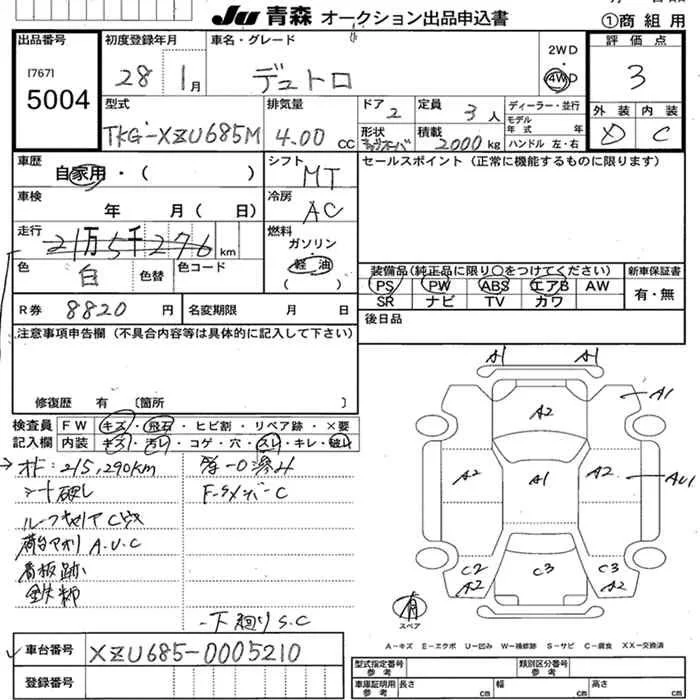 JU 青森 オークション出品申込書
①商 組 用
出品番号
[767]
5004
初度登録年月
28 1月
車名・グレード
デュトロ
2WD
4WD
評価点
3
外装 内装
D C
型式
TKG-XZU685M
排気量
4.00 CC
ドア 2
定員 3 人
形状
積載 2000 kg
ディーラー・並行
モデル
年式 年
ハンドル 左・右
車歴
自家用・( )
シフト
MT
セールスポイント(正常に機能するものに限ります)
車検
年 月( 日)
冷房
AC
走行
21万5千276 km
燃料
ガソリン
軽油
( )
色
白
色替
色コード
装備品(純正品に限り○をつけてください)
新車保証書
PS PW ABS エアB AW
SR ナビ TV カワ
有・無
R券 8820 円
名変期限 月 日
後日品
注意事項申告欄(不具合内容等は具体的に記入して下さい)
修復歴 有 〔箇所 〕
検査員
記入欄
FW キズ・飛石・ヒビ割・リペア跡・×要
内装 キズ・汚レ・コゲ・穴・スレ・キレ・破レ
オド:215,290km
シート破レ
ルーフキャリアC
荷台アオリ A.U.C
看板跡
下廻り S.C
A1 A1
A1
A2
A2 A1 A2 AU1
C2 A2 C3 C3 A2
有
スペア
A-キズ E-エクボ U-凹み W-補修跡 S-サビ C-腐食 XX-交換済
車台番号
XZU685-0005210
登録番号
型式指定番号
参考
類別区分番号
参考
車庫証明用
参考
長さ cm 幅 cm 高さ cm